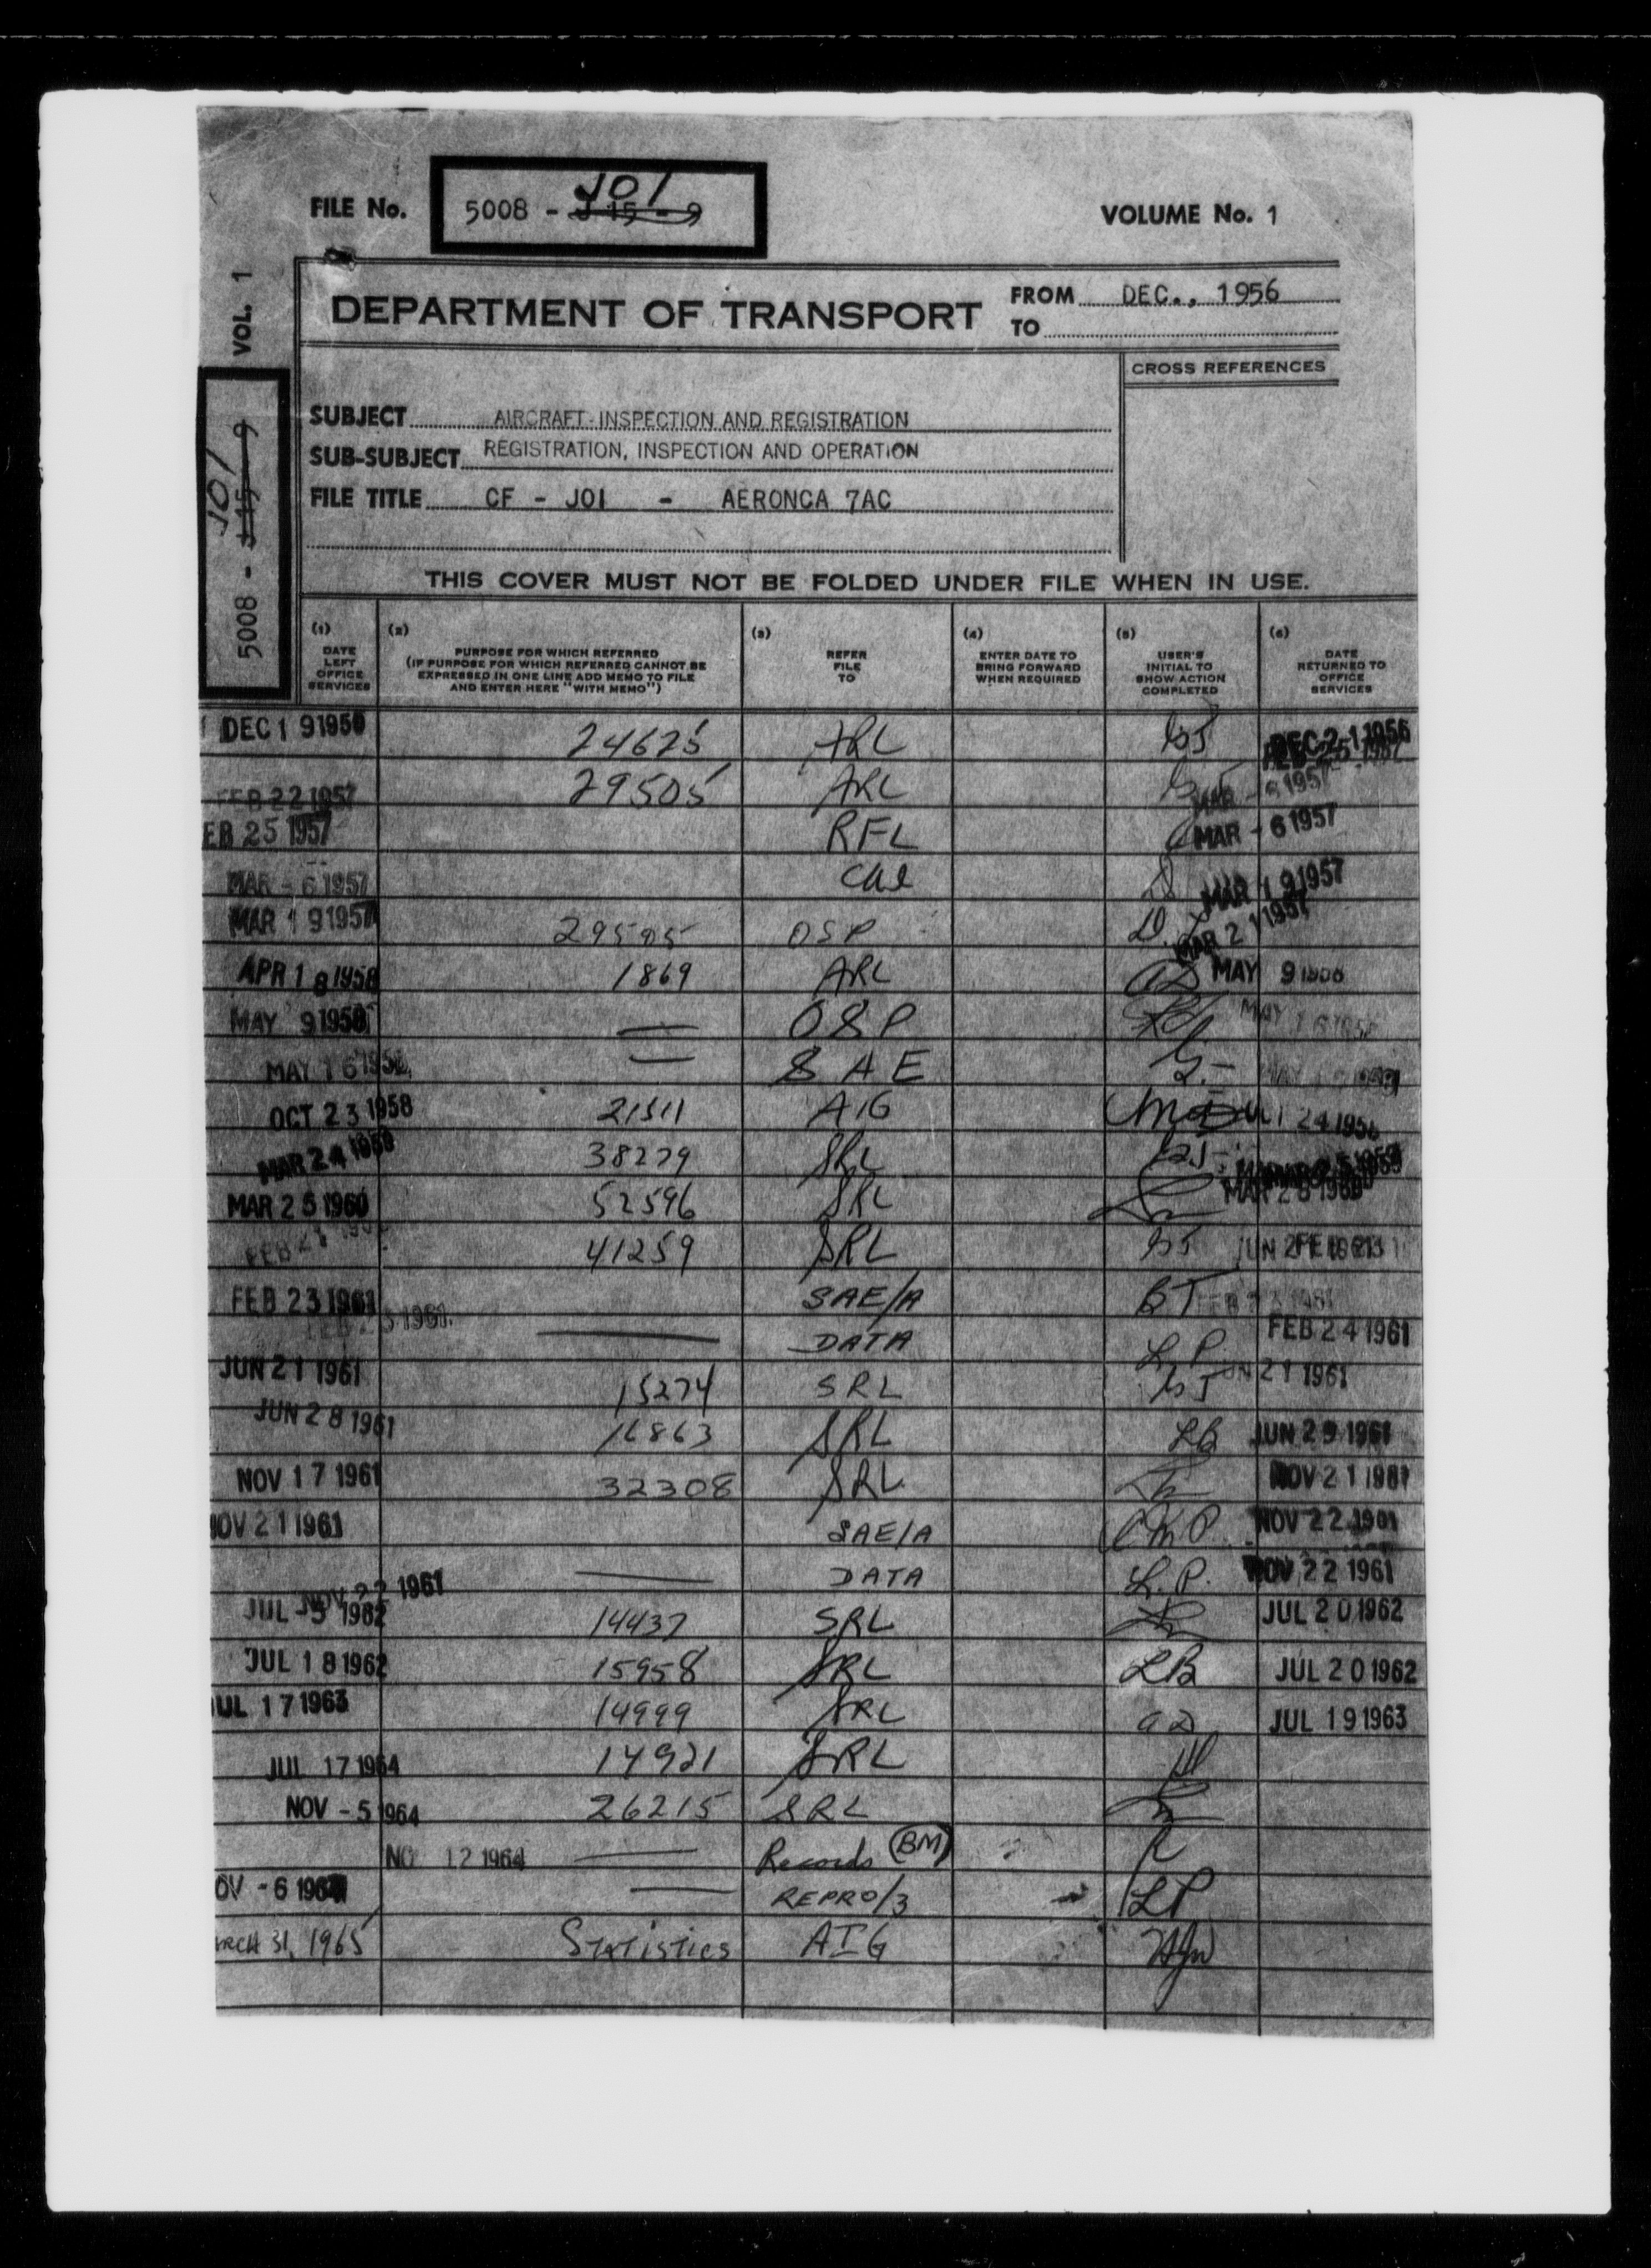 JOI
FILE No. 5008 - J 15 - 9 VOLUME No. 1
VOL. 1
5008 - J 15 - 9
JOI
DEPARTMENT OF TRANSPORT
FROM DEC., 1956
TO
CROSS REFERENCES
SUBJECT AIRCRAFT - INSPECTION AND REGISTRATION
SUB-SUBJECT REGISTRATION, INSPECTION AND OPERATION
FILE TITLE CF - JOI - AERONCA 7AC
THIS COVER MUST NOT BE FOLDED UNDER FILE WHEN IN USE.
(1) DATE LEFT OFFICE SERVICES
(2) PURPOSE FOR WHICH REFERRED (IF PURPOSE FOR WHICH REFERRED CANNOT BE EXPRESSED IN ONE LINE ADD MEMO TO FILE AND ENTER HERE "WITH MEMO")
(3) REFER FILE TO
(4) ENTER DATE TO BRING FORWARD WHEN REQUIRED
(5) USER'S INITIAL TO SHOW ACTION COMPLETED
(6) DATE RETURNED TO OFFICE SERVICES
DEC 1 9 1956 24625 ARL DEC 2 1 1956
FEB 22 1957 29505 ARL MAR - 6 1957
EB 25 1957 RFL MAR - 6 1957
MAR - 6 1957 MAR 1 9 1957
MAR 1 9 1957 29505 OSP D. MAR 2 1 1957
APR 1 8 1958 1869 ARL aD MAY 9 1958
MAY 9 1958 — OSP MAY 1 6 1958
MAY 1 6 1958 — SAE
OCT 2 3 1958 21511 AIG 24 1958
MAR 2 4 1959 38279 SRL
MAR 2 5 1960 52596 SRL MAR 2 8 1960
FEB 21 41259 SRL
FEB 23 1961 SAE/A BT
1961 — DATA L.P. FEB 2 4 1961
JUN 2 1 1961 15274 SRL UN 2 1 1961
JUN 2 8 1961 16863 SRL LB JUN 2 9 1961
NOV 1 7 1961 32308 SRL NOV 2 1 1961
NOV 2 1 1961 SAE/A NOV 2 2 1961
NOV 22 1961 — DATA L.P. NOV 2 2 1961
JUL - 5 1962 14437 SRL JUL 2 0 1962
JUL 1 8 1962 15958 SRL LB JUL 2 0 1962
UL 1 7 1963 14999 SRL aD JUL 1 9 1963
JUL 17 1964 14921 SRL
NOV - 5 1964 26215 SRL
NO 12 1964 — Records BM R
OV - 6 1964 — REPRO/3 LP
ARCH 31, 1965 Statistics AIG